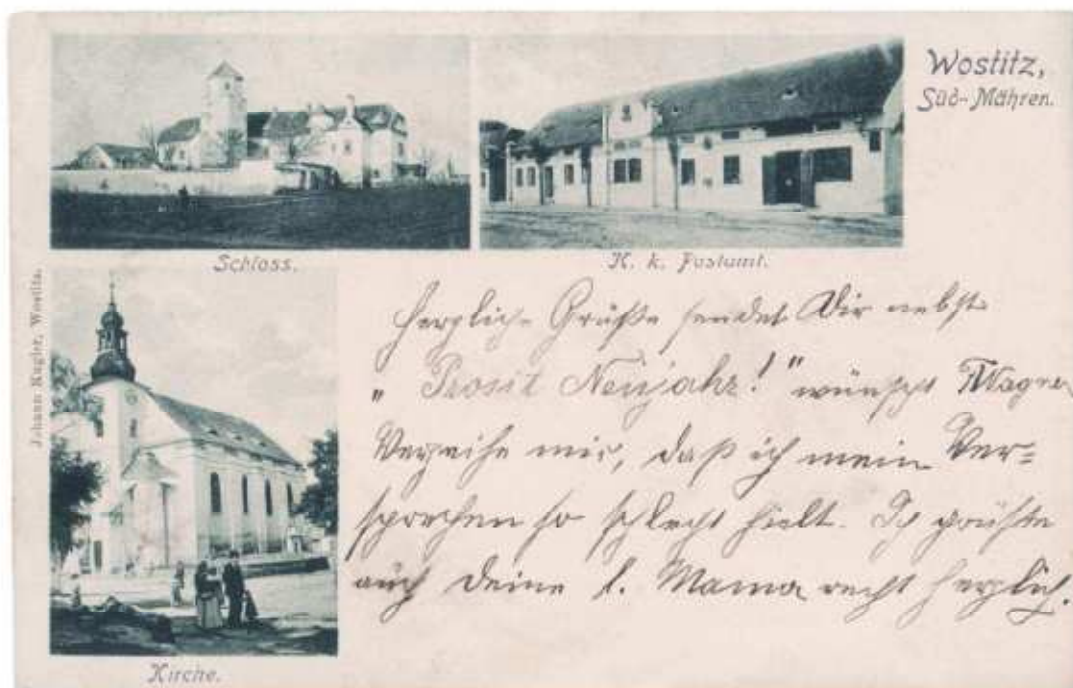 Wostitz,
Süd-Mähren.
Schloss.
K. k. Postamt.
Johann Kugler, Wostitz.
Herzliche Grüße sendet Dir nebst
„Prosit Neujahr!" wünscht Wagner
Verzeihe mir, daß ich mein Ver=
sprechen so schlecht hielt. Ich grüße
auch Deine l. Mama recht herzlich.
Kirche.